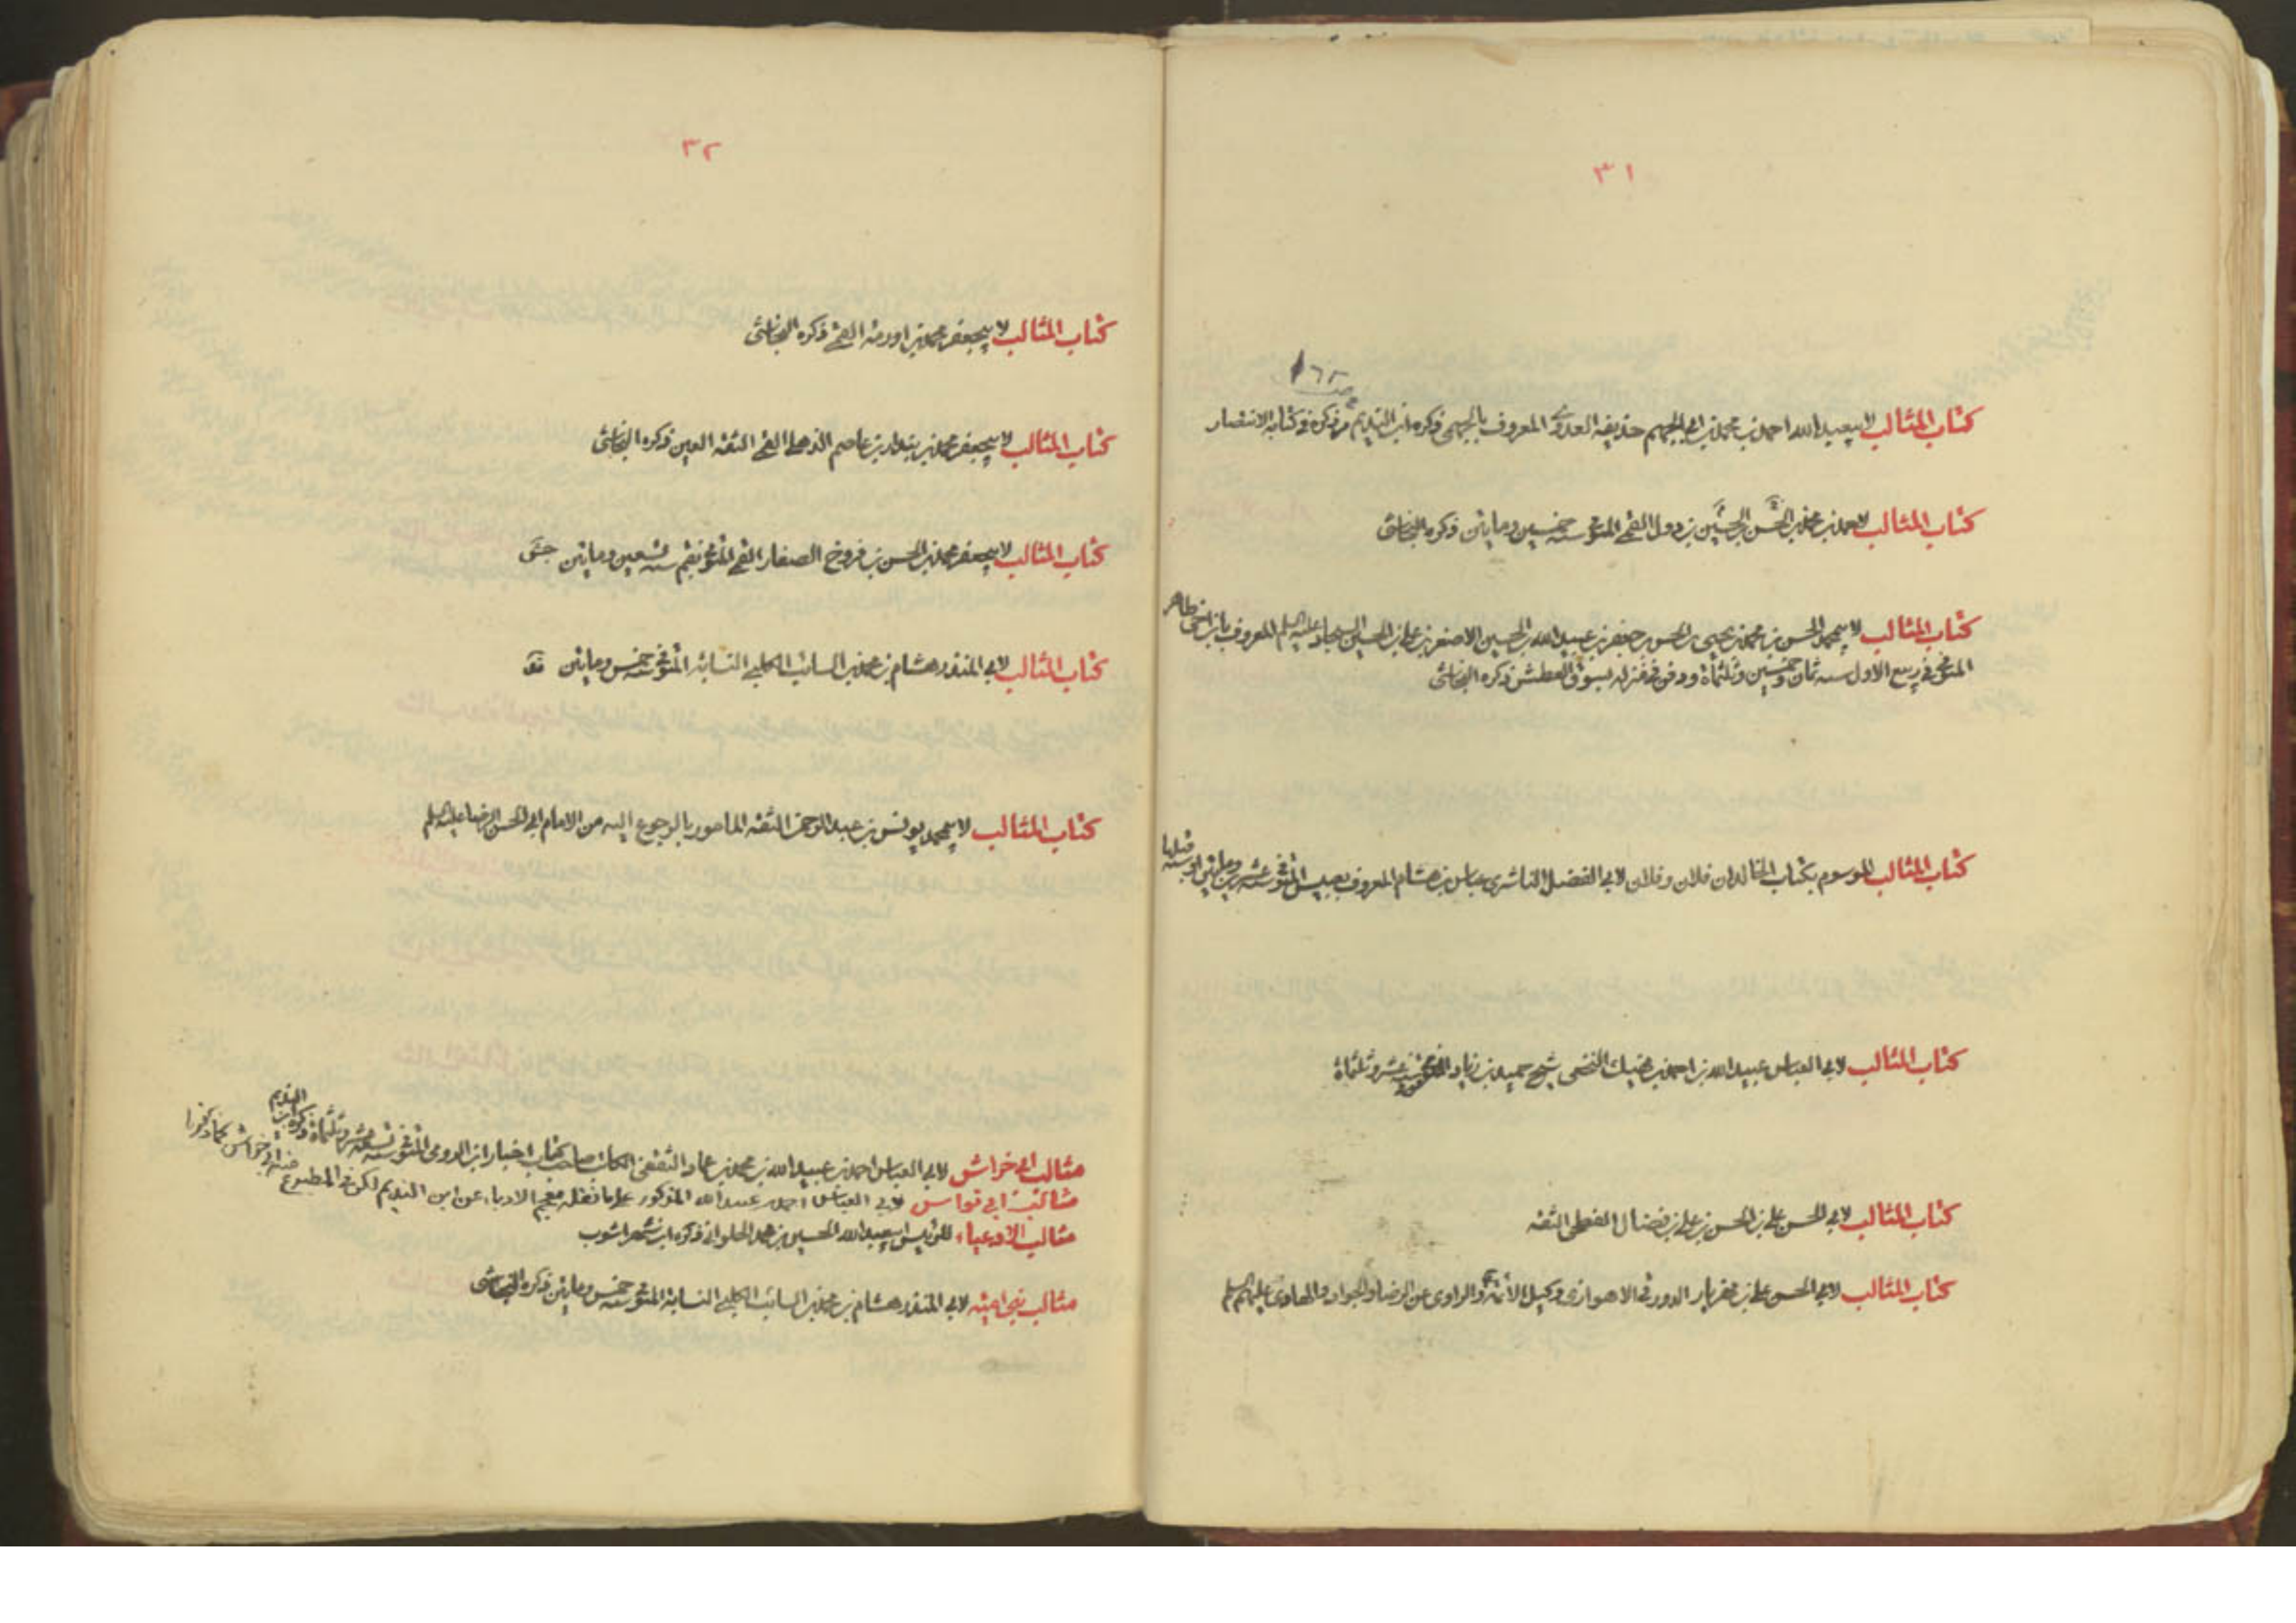 ٣١
١٦٢
كتاب المثالب لابيعبيدالله احمد بن محمد بن ابي الجهم حذيفه العدوي المعروف بالجهمي ذكره ابن النديم مر ذكره في كتابه الانتصار
كتاب المثالب لاحمد بن محمد بن الحسين بن الحسن بن دول القمي المتوفى سنه خمسين ومايتين ذكره النجاشي
كتاب المثالب لابيمحمد الحسن بن محمد بن يحيى بن الحسن بن جعفر بن عبيدالله بن الحسين الاصغر بن علي بن الحسين السجاد عليه السلم المعروف بابن اخي طاهر
المتوفى في ربيع الاول سنه ثمان وخمسين وثلثمأة ودفن في منزله بسوق العطش ذكره النجاشي
كتاب المثالب الموسوم بكتاب الخالدان فلان وفلان لابي الفضل الناشري عباس بن هشام المعروف بعبيس المتوفى سنه عشرين ومايتين او سنه قبلها
كتاب المثالب لابي العباس عبيدالله بن احمد بن نهيك النخعي شيخ حميد بن زياد المتوفى سنه عشر وثلثمأة
كتاب المثالب لابي الحسن علي بن الحسن بن علي بن فضال الفطحي الثقه
كتاب المثالب لابي الحسن علي بن مهزيار الدورقي الاهوازي وكيل الأئمة والراوي عن الرضا والجواد والهادي عليهم السلم
٣٢
كتاب المثالب لابيجعفر محمد بن اورمه القمي ذكره النجاشي
كتاب المثالب لابيجعفر محمد بن بندار بن عاصم الذهلي القمي الثقه العين ذكره النجاشي
كتاب المثالب لابيجعفر محمد بن الحسن بن فروخ الصفار القمي المتوفى بقم سنه تسعين ومايتين جش
كتاب المثالب لابي المنذر هشام بن محمد بن السائب الكلبي النسابه المتوفى سنه خمس ومايتين
كتاب المثالب لابيمحمد يونس بن عبد الرحمن الثقه المامور بالرجوع اليه من الامام ابي الحسن الرضا عليه السلم
مثالب ابي خراش لابي العباس احمد بن عبيدالله بن محمد بن عمار الثقفي الكاتب صاحب كتاب اخبار ابن الرومي المتوفى سنه تسع عشر وثلثمأة ذكره ابن النديم
مثالب ابي نواس لابي العباس احمد بن عبيدالله المذكور على ما نقله معجم الادباء عن ابن النديم لكن في المطبوع منه ابو خراش كما ذكرنا
مثالب الادعياء للرئيس ابيعبدالله الحسين بن محمد الحلواني ذكره ابن شهراشوب
مثالب بني اميه لابي المنذر هشام بن محمد بن السائب الكلبي النسابه المتوفى سنه خمس ومايتين ذكره النجاشي